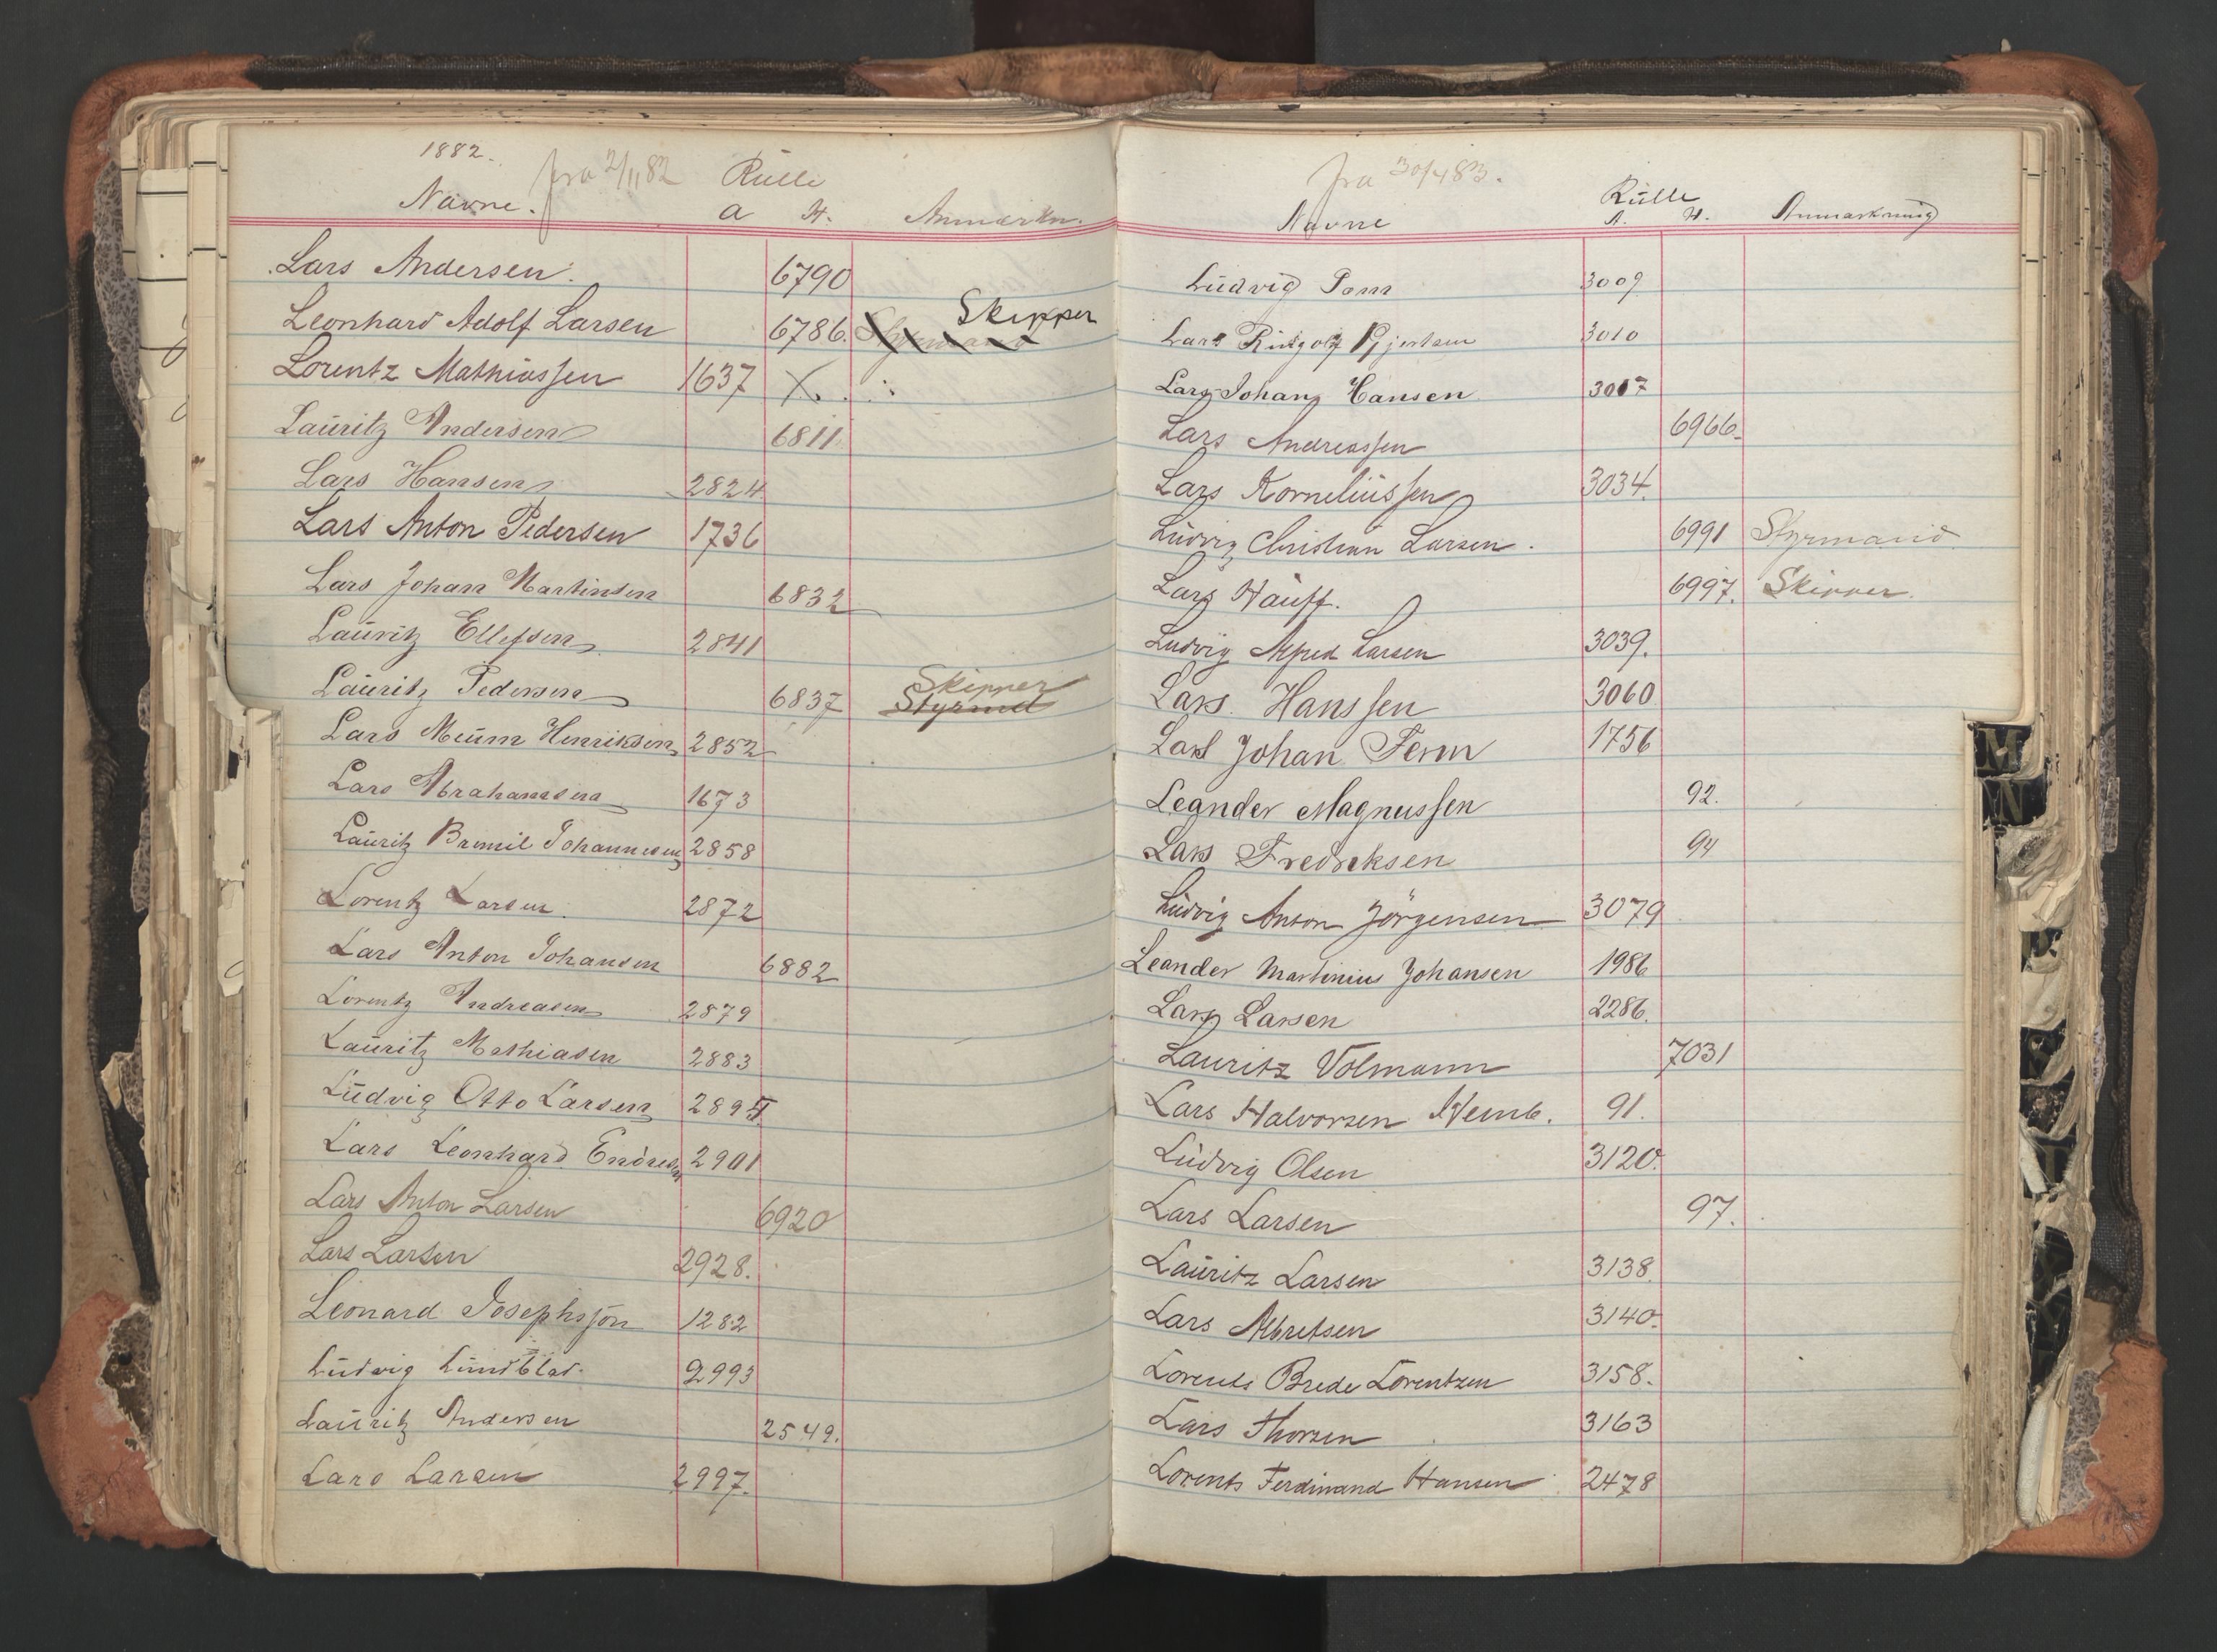 1882.
fra 2/11 82 Rülle
Navne. a H. Anmærkn.
Lars Andersen. 6790
Skipper
Leonhard Adolf Larsen 6786. Styrmand
Lorentz Mathiassen 1637 X.
Laüritz Andersen 6811.
Lars Hansen 2824
Lars Anton Pedersen 1736
Lars Johan Martinsen 6832
Laüritz Ellefsen 2841
Skipper
Laüritz Pedersen 6837 Styrmd
Lars Meüm Henriksen 2852
Lars Abrahamsen 1673
Laüritz Johannesen 2858
Lorentz Larsen. 2872
Lars Anton Johansen 6882
Lorentz Andreasen 2879
Laüritz Mathiasen 2883
Lüdvig Otto Larsen 2895.
Lars Leonhard Endresen 2901
Lars Anton Larsen 6920
Lars Larsen 2928.
Leonard Josephsson 1282
Lüdvig Lündblad. 2993
Laüritz Andersen 2549.
Lars Larsen 2997.
fra 30/4 83.
Rülle
Navne A. H. Anmærkning
Lüdvig 3009
Lars Gjertsen 3010
Lars Johan Hansen 3017
Lars Andreassen 6966.
Lars Korneliüssen 3034.
Lüdvig Christian Larsen. 6991 Styrmand.
Lars Haüff. 6997. Skipper.
Ludvig Alfred Larsen 3039.
Lars Hanssen 3060
Lars Johan Ferm 1756
Leander Magnussen 92.
Lars Fredreksen 94
Lüdvig Anton Jörgensen 3079
Leander Martinius Johansen 1986
Lars Larsen 2286.
Lauritz Volmann 7031
Lars Halvorsen Hemb. 91.
Lüdvig Olsen 3120.
Lars Larsen 97.
Laüritz Larsen 3138
Lars Albretsen 3140.
Lorents Brede Lorentzen 3158.
Lars Thorsen 3163
Lorents Ferdinand Hansen 2478
M
N